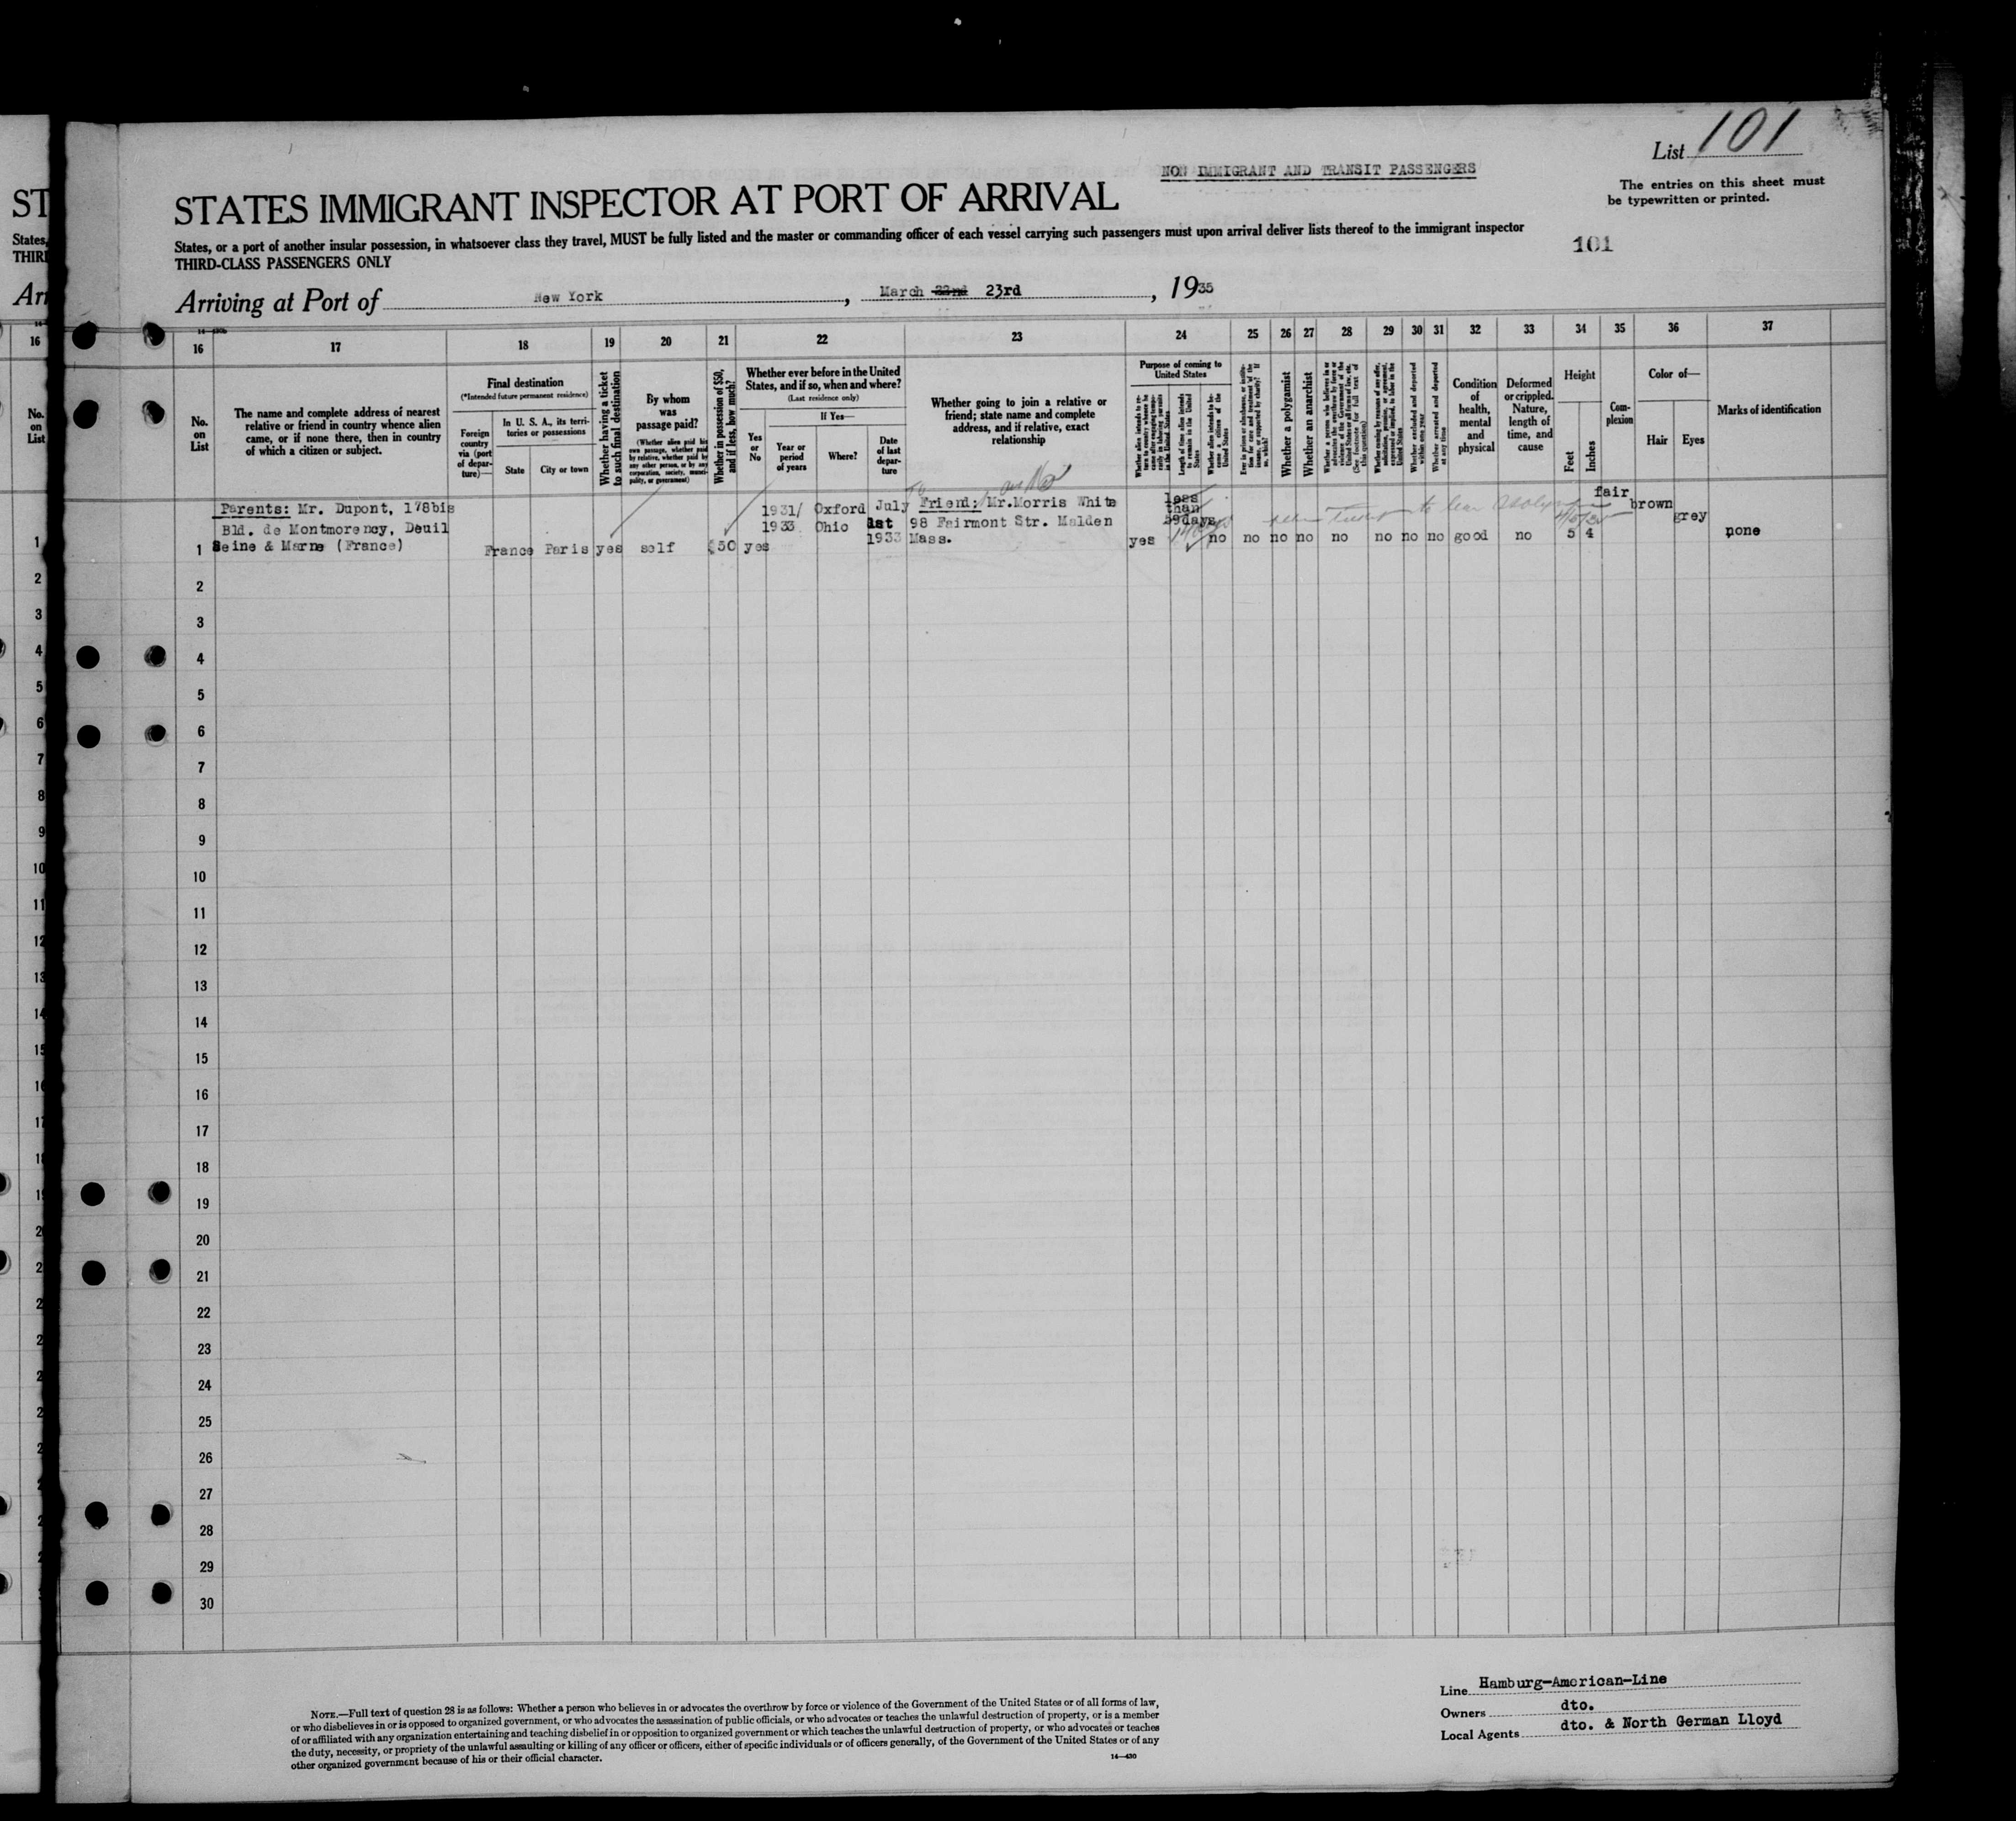 List 101
NON IMMIGRANT AND TRANSIT PASSENGERS
The entries on this sheet must
be typewritten or printed.
STATES IMMIGRANT INSPECTOR AT PORT OF ARRIVAL
States, or a port of another insular possession, in whatsoever class they travel, MUST be fully listed and the master or commanding officer of each vessel carrying such passengers must upon arrival deliver lists thereof to the immigrant inspector
THIRD-CLASS PASSENGERS ONLY
101
Arriving at Port of New York, March 22nd 23rd, 1935
16 17 18 19 20 21 22 23 24 25 26 27 28 29 30 31 32 33 34 35 36 37
No.
on
List
The name and complete address of nearest
relative or friend in country whence alien
came, or if none there, then in country
of which a citizen or subject.
Final destination
(*Intended future permanent residence)
Foreign
country
via (port
of depar-
ture)—
In U. S. A., its terri-
tories or possessions
State
City or town
Whether having a ticket
to such final destination
By whom
was
passage paid?
(Whether alien paid his
own passage, whether paid
by relative, whether paid by
any other person, or by any
corporation, society, munici-
pality, or government)
Whether in possession of $50,
and if less, how much?
Whether ever before in the United
States, and if so, when and where?
(Last residence only)
Yes
or
No
If Yes—
Year or
period
of years
Where?
Date
of last
depar-
ture
Whether going to join a relative or
friend; state name and complete
address, and if relative, exact
relationship
Purpose of coming to
United States
Length of time alien intends
to remain in the United
States
Whether a polygamist
Whether an anarchist
Whether excluded and deported
within one year
Whether arrested and deported
at any time
Condition
of
health,
mental
and
physical
Deformed
or crippled.
Nature,
length of
time, and
cause
Height
Feet
Inches
Com-
plexion
Color of—
Hair
Eyes
Marks of identification
Parents: Mr. Dupont, 178bis
Bld. de Montmorency, Deuil
1 Seine & Marne (France)
France Paris yes self $50 yes
1931/
1933
Oxford
Ohio
July
1st
1933
Friend: Mr.Morris White
98 Fairmont Str. Malden
Mass.
less
than
59days
yes no no no no no no no no good no 5 4
fair
brown
grey
none
2
3
4
5
6
7
8
9
10
11
12
13
14
15
16
17
18
19
20
21
22
23
24
25
26
27
28
29
30
NOTE.—Full text of question 28 is as follows: Whether a person who believes in or advocates the overthrow by force or violence of the Government of the United States or of all forms of law,
or who disbelieves in or is opposed to organized government, or who advocates the assassination of public officials, or who advocates or teaches the unlawful destruction of property, or is a member
of or affiliated with any organization entertaining and teaching disbelief in or opposition to organized government or which teaches the unlawful destruction of property, or who advocates or teaches
the duty, necessity, or propriety of the unlawful assaulting or killing of any officer or officers, either of specific individuals or of officers generally, of the Government of the United States or of any
other organized government because of his or their official character.
14—430
Line Hamburg-American-Line
Owners dto.
Local Agents dto. & North German Lloyd